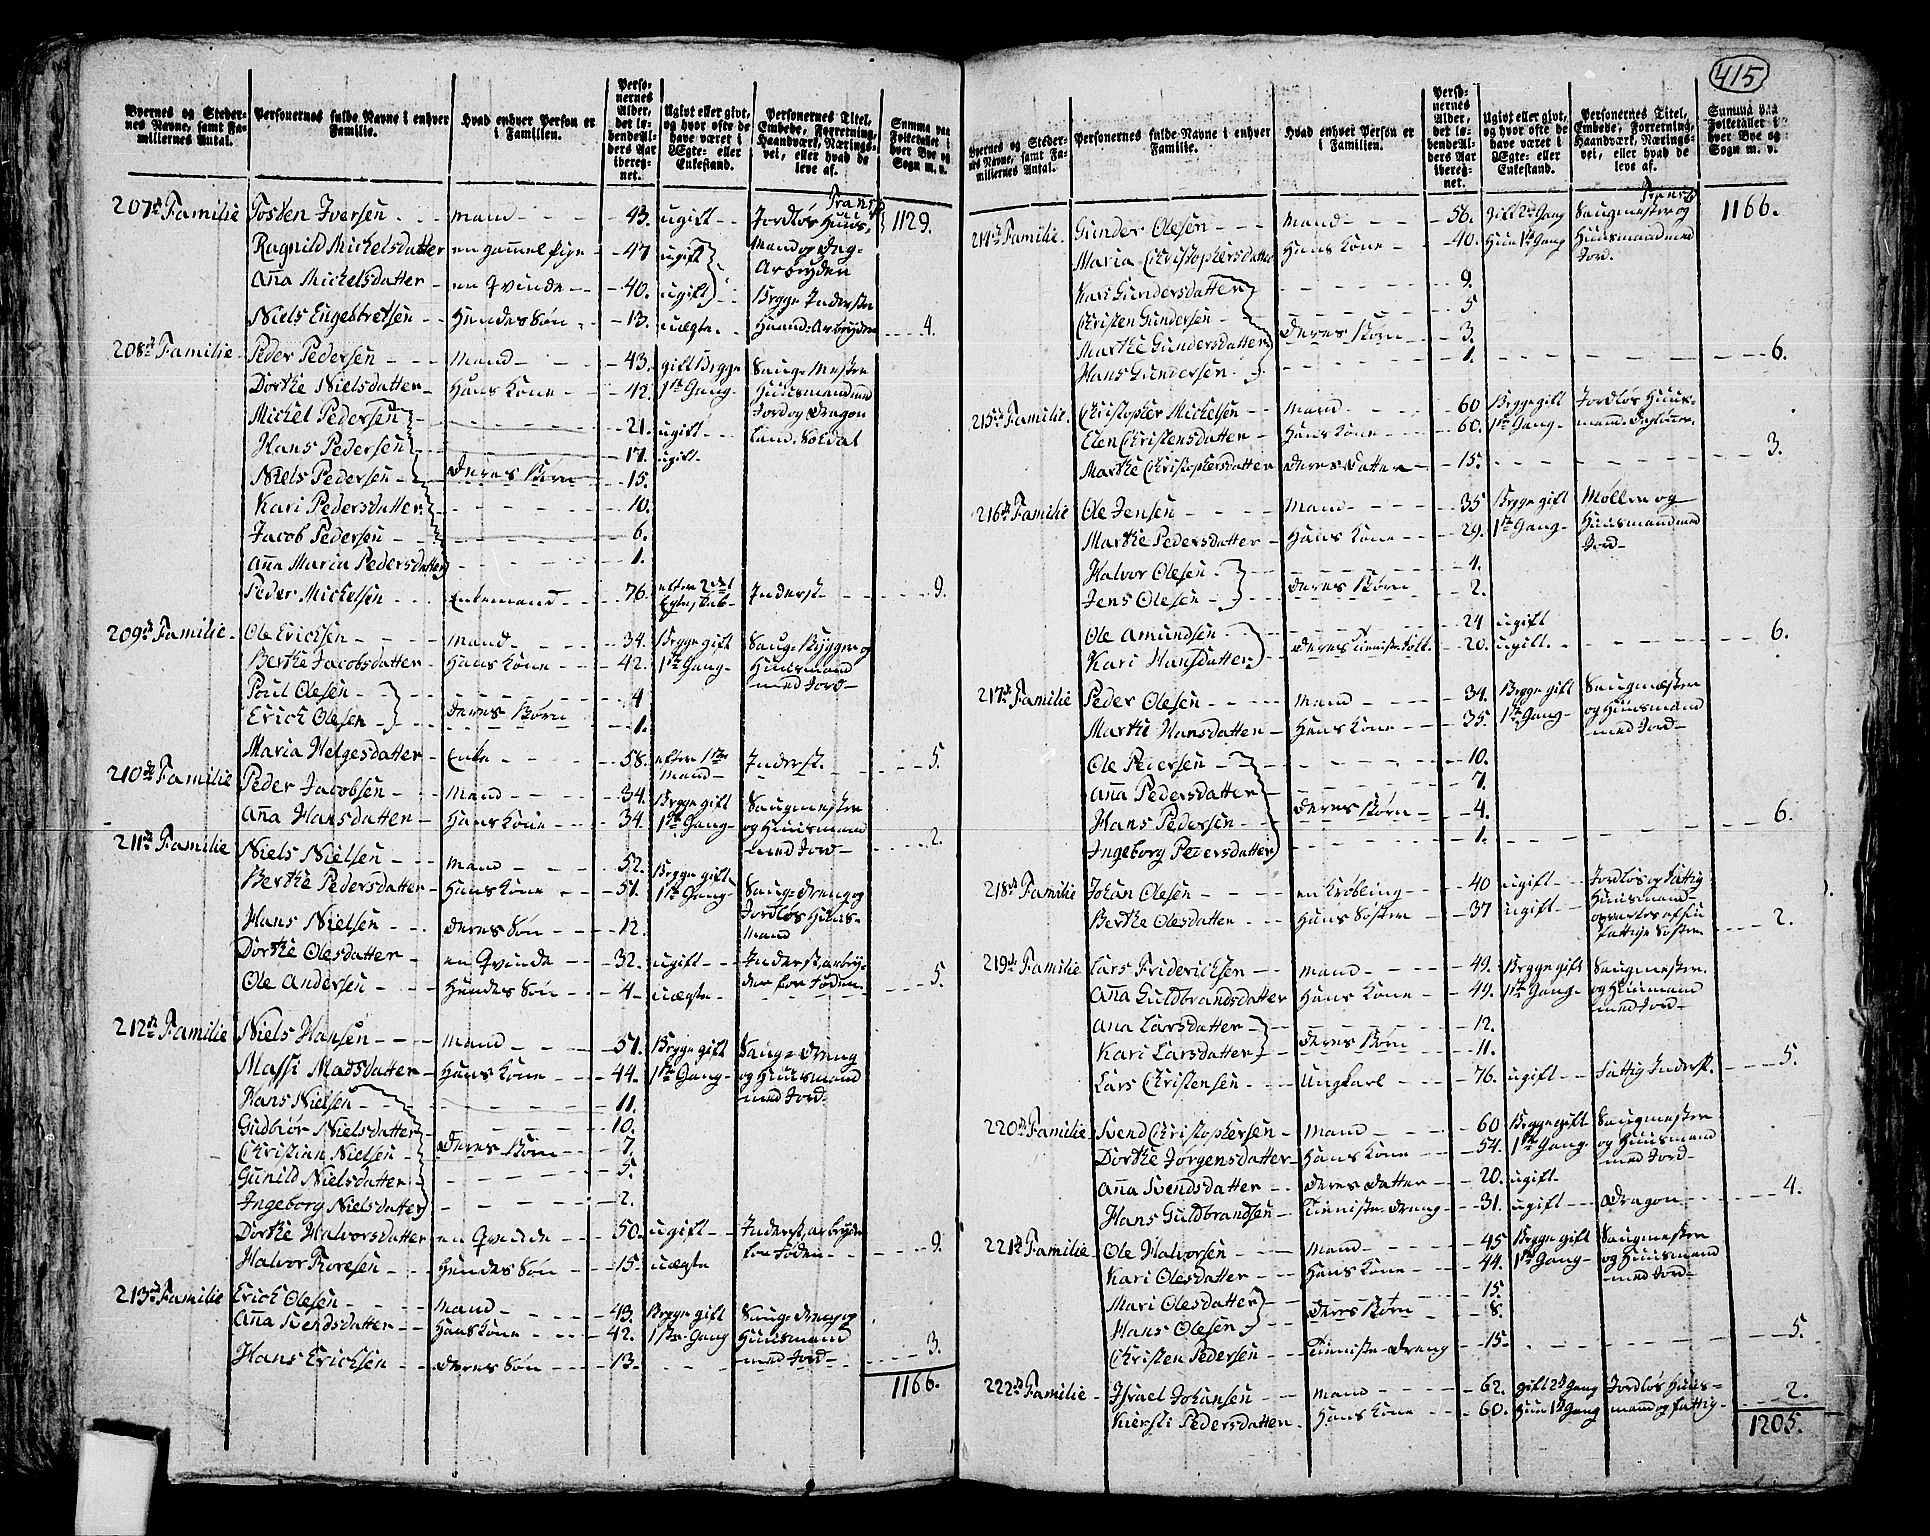 415
Byernes og Stedernes Navne, samt Familiernes Antal.
Personernes fulde Navne i enhver Familie.
Hvad enhver Person er i Familien.
Personernes Alder, det løbendeAlders Aar iberegnet.
Ugivt eller givt, og hvor ofte de have været i Ægte- eller Enkestand.
Personernes Titel, Embede, Forretning, Haandværk, Næringsvei, eller hvad de leve af.
Summa paa Folketallet i hver Bye og Sogn m. v.
Transp 1129.
207de Familie Tosten Iversen - mand - 43. ugift - Jordløs Huus-
Ragnild Michelsdatter en gammel Pige - 47 ugift mand og Dag-
Anna Michelsdatter - en Qvinde - 40. ugift Arbeyden
Niels Engebretsen - Hendes Søn - 13. uægte - Begge Inderster Haand-Arbeyden - 4.
208de Familie - Peder Pedersen - mand - 43. gift Begge Saug-Mester
Dorthe Nielsdatter - Hans Kone - 42. 1ste Gang - Huusmand med
Michel Pedersen - 21. ugift - Jord og Dragon
Hans Pedersen - 17. ugift - Land-Soldat
Niels Pedersen - Deres Børn - 15.
Kari Pedersdatter - 10.
Jacob Pedersen - 6.
Anna Maria Pedersdatter - 1.
Peder Michelsen - Enkemand - 76. efter 2det Egteskab - Inderst - 9.
209de Familie - Ole Ericksen - mand - 34. Begge gift Saug-Bygger og
Berthe Jacobsdatter - Hans Kone - 42. 1ste Gang - Huusmand
Poul Olesen - 4 med Jord -
Erich Olesen - Deres Børn - 1.
Maria Helgesdatter - Enke - 58. efter 1ste Mand - Inderst - 5.
210de Familie Peder Jacobsen - mand - 34. Begge gift Saugmester
Anna Hansdatter - Hans Kone - 34. 1ste Gang - og Huusmand med Jord - 2.
211te Familie Niels Nielsen - mand - 52. Begge gift
Berthe Pedersdatter - Hans Kone - 51. 1ste Gang - Saug-Dreng og
Hans Nielsen - Deres Søn - 12. Jordløs Huus-Mand
Dorthe Olesdatter - en Qvinde - 32. ugift - Inderst, arbey-
Ole Andersen - Hendes Søn - 4 - uægte - der for Føden - 5.
212te Familie Niels Hansen - mand - 51. Begge gift Saug-Dreng
Massi Madsdatter - Hans Kone - 44. 1ste Gang - og Huusmand
Hans Nielsen - 11. med Jord -
Gudbiør Nielsdatter - 10.
Christian Nielsen - Deres Børn - 7.
Gunild Nielsdatter - 5.
Ingeborg Nielsdatter - 2.
Dorthe Halvorsdatter en Qvinde - 50. ugift - Inderst, arbeyder
Halvor Roresen - Hendes Søn - 15. uægte for Føden - 9.
213de Familie Erich Olesen - mand - 43. Begge gift Saug-Dreng og
Anna Svendsdatter - Hans Kone - 42. 1ste Gang Huusmand
Hans Erichsen - Deres Søn - 13. - med Jord - 3.
1166.
Byernes og Stedernes Navne, samt Familiernes Antal.
Personernes fulde Navne i enhver Familie.
Hvad enhver Person er i Familien.
Personernes Alder, det løbendeAlders Aar iberegnet.
Ugivt eller givt, og hvor ofte de have været i Ægte- eller Enkestand.
Personernes Titel, Embede, Forretning, Haandværk, Næringsvei, eller hvad de leve af.
Summa paa Folketallet i hver Bye og Sogn m. v.
Transp 1166.
214de Familie. Gunder Olesen - mand - 56. gift 2de Gang Saugmester og
Maria Christophersdatter Hans Kone - 40. Hun 1ste Gang Huusmand med Jord.
Kari Gundersdatter - 9.
Christen Gundersen - 5
Marthe Gundersdatter Deres Børn - 3.
Hans Gundersen - 1. - 6.
215de Familie. Christopher Michelsen - mand - 60 Begge gift Jordløs Huus-
Elen Christensdatter - Hans Kone - 60. 1ste Gang - mand. Dagleyer.
Marthe Christophersdatter Deres Datter - 15. - 3.
216de Familie Ole Jensen - mand - 35 Begge gift Møller og
Marthe Pedersdatter - Hans Kone - 29. 1ste Gang - Huusmand med Jord -
Halvor Olesen - 4.
Jens Olesen - Deres Børn - 2.
Ole Amundsen - 24 ugift
Kari Hansdatter Deres Tieniste Folk. - 20. ugift. - 6.
217de Familie Peder Olesen - mand - 34. Begge gift Saugmester
Marthe Hansdatter - Hans Kone - 35. 1ste Gang - og Huusmand med Jord -
Ole Pedersen - 10.
Anna Pedersdatter - 7.
Hans Pedersen - Deres Børn - 4.
Ingeborg Pedersdatter - 1. - 6.
218de Familie Johan Olesen - en Krøbling - 40 ugift - Jordløs og fattig
Berthe Olesdatter - Hans Søster - 37 ugift - Huusmand - opvartes af sin fattige Søster - 2.
219de Familie Lars Friderichsen - mand - 49. Begge gift Saugmester.
Anna Guldbrandsdatter Hans Kone - 49. 1ste Gang - og Huusmand med Jord -
Ana Larsdatter - 12.
Kari Larsdatter Deres Børn - 11.
Lars Christensen - Ungkarl - 76. ugift - fattig Inderst - 5.
220de Familie - Svend Christophersen - mand - 60 Begge gift Saugmester
Dorthe Jørgensdatter - Hans Kone - 54. 1ste Gang og Huusmand med Jord -
Anna Svendsdatter - Deres Datter - 20. ugift.
Hans Guldbrandsen - Tieniste-Dreng - 31. ugift - Dragon - 4.
221de Familie - Ole Halvorsen - mand - 45 Begge gift Saugmester
Kari Olesdatter - Hans Kone - 44. 1ste Gang - og Huusmand med Jord -
Mari Olesdatter - 15.
Hans Olesen - Deres Børn - 8.
Christen Pedersen - Tieniste-Dreng - 15 - 5.
222de Familie - Israel Johansen - mand - 62. gift 2de Gang Jordløs Huus-
Kiersti Pedersdatter - Hans Kone - 60. Hun 1ste Gang mand og fattig - 2.
1205.